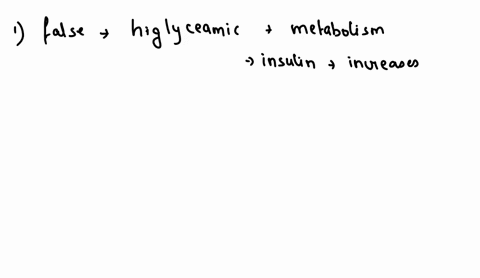 1) false → higlyceamic + metabolism
→ insulin → increases